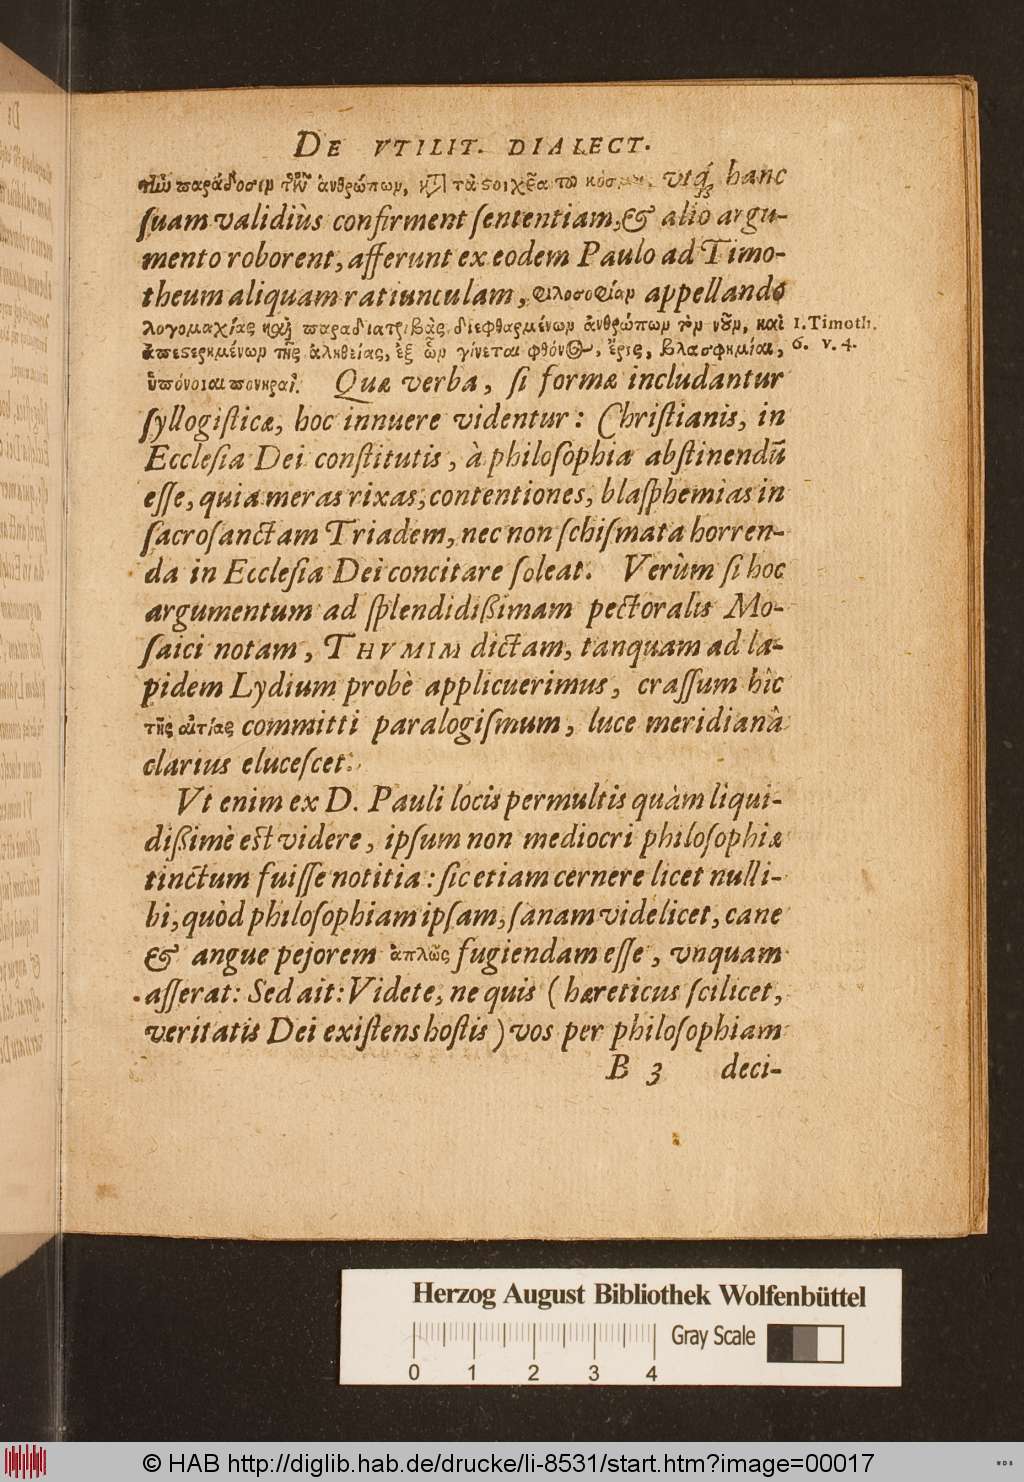 DE VTILIT. DIALECT.
τὴν παράδοσιν τῶν ἀνθρώπων, καὶ τὰ ϛοιχεῖα τοῦ κόσμου. vtq́ꝫ hanc
ſuam validiùs confirment ſententiam, & alio argu-
mento roborent, afferunt ex eodem Paulo ad Timo-
theum aliquam ratiunculam, φιλοσοφίαν appellando
λογομαχίας καὶ παραδιατριβὰς διεφθαρμένων ἀνθρώπων τὸν νοῦν, καὶ
1. Timoth.
ἀπεϛερημένων τῆς ἀληθείας, ἐξ ὧν γίνεται φθόνος, ἔρις, βλασφημίαι,
6. v. 4.
ὑπόνοιαι πονηραί. Quæ verba, ſi formæ includantur
ſyllogiſticæ, hoc innuere videntur: Chriſtianis, in
Eccleſia Dei conſtitutis, à philoſophia abſtinendū
eſſe, quia meras rixas, contentiones, blaſphemias in
ſacroſanctam Triadem, nec non ſchiſmata horren-
da in Eccleſia Dei concitare ſoleat. Verùm ſi hoc
argumentum ad ſplendidißimam pectoralis Mo-
ſaici notam, THVMIM dictam, tanquam ad la-
pidem Lydium probè applicuerimus, craſſum hîc
τῆς αἰτίας committi paralogiſmum, luce meridianâ
clarius eluceſcet.
Vt enim ex D. Pauli locis permultis quàm liqui-
dißimè est videre, ipſum non mediocri philoſophiæ
tinctum fuiſſe notitia: ſic etiam cernere licet nulli-
bi, quòd philoſophiam ipſam, ſanam videlicet, cane
& angue pejorem ἁπλῶς fugiendam eſſe, vnquam
aſſerat: Sed ait: Videte, ne quis (hæreticus ſcilicet,
veritatis Dei exiſtens hoſtis) vos per philoſophiam
B 3 deci-
Herzog August Bibliothek Wolfenbüttel
Gray Scale
0 1 2 3 4
© HAB http://diglib.hab.de/drucke/li-8531/start.htm?image=00017